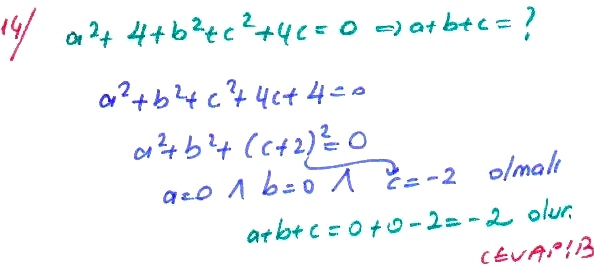 14/ a²+4+b²+c²+4c=0 ⇒ a+b+c=?
a²+b²+c²+4c+4=0
a²+b²+(c+2)²=0
a=0 ∧ b=0 ∧ c=-2 olmalı
a+b+c=0+0-2=-2 olur.
CEVAP:B